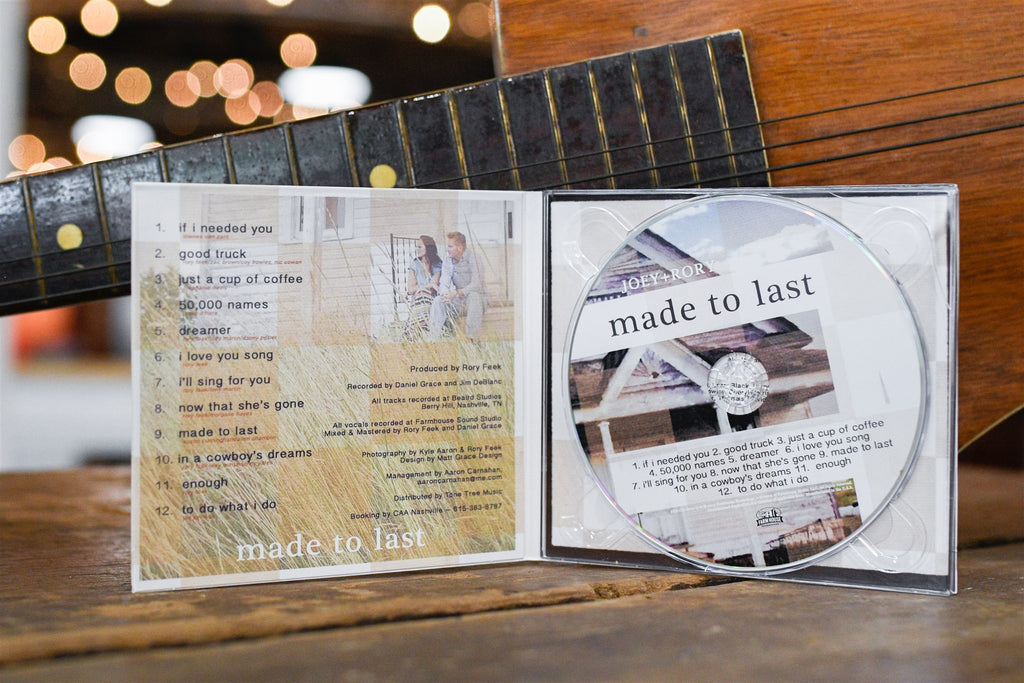 1. if i needed you
2. good truck
3. just a cup of coffee
4. 50,000 names
5. dreamer
6. i love you song
7. i'll sing for you
8. now that she's gone
9. made to last
10. in a cowboy's dreams
11. enough
12. to do what i do
Produced by Rory Feek
Recorded by Daniel Grace and Jim DeBlanc
All tracks recorded at Beaird Studios
Berry Hill, Nashville, TN
All vocals recorded at Farmhouse Sound Studio
Mixed & Mastered by Rory Feek and Daniel Grace
Photography by Kyle Aaron & Rory Feek
Design by Matt Grace Design
Management by Aaron Carnahan,
aaroncarnahan@me.com
Distributed by Tone Tree Music
Booking by CAA Nashville — 615-383-8787
made to last
JOEY+RORY
made to last
1. if i needed you 2. good truck 3. just a cup of coffee
4. 50,000 names 5. dreamer 6. i love you song
7. i'll sing for you 8. now that she's gone 9. made to last
10. in a cowboy's dreams 11. enough
12. to do what i do
FARMHOUSE